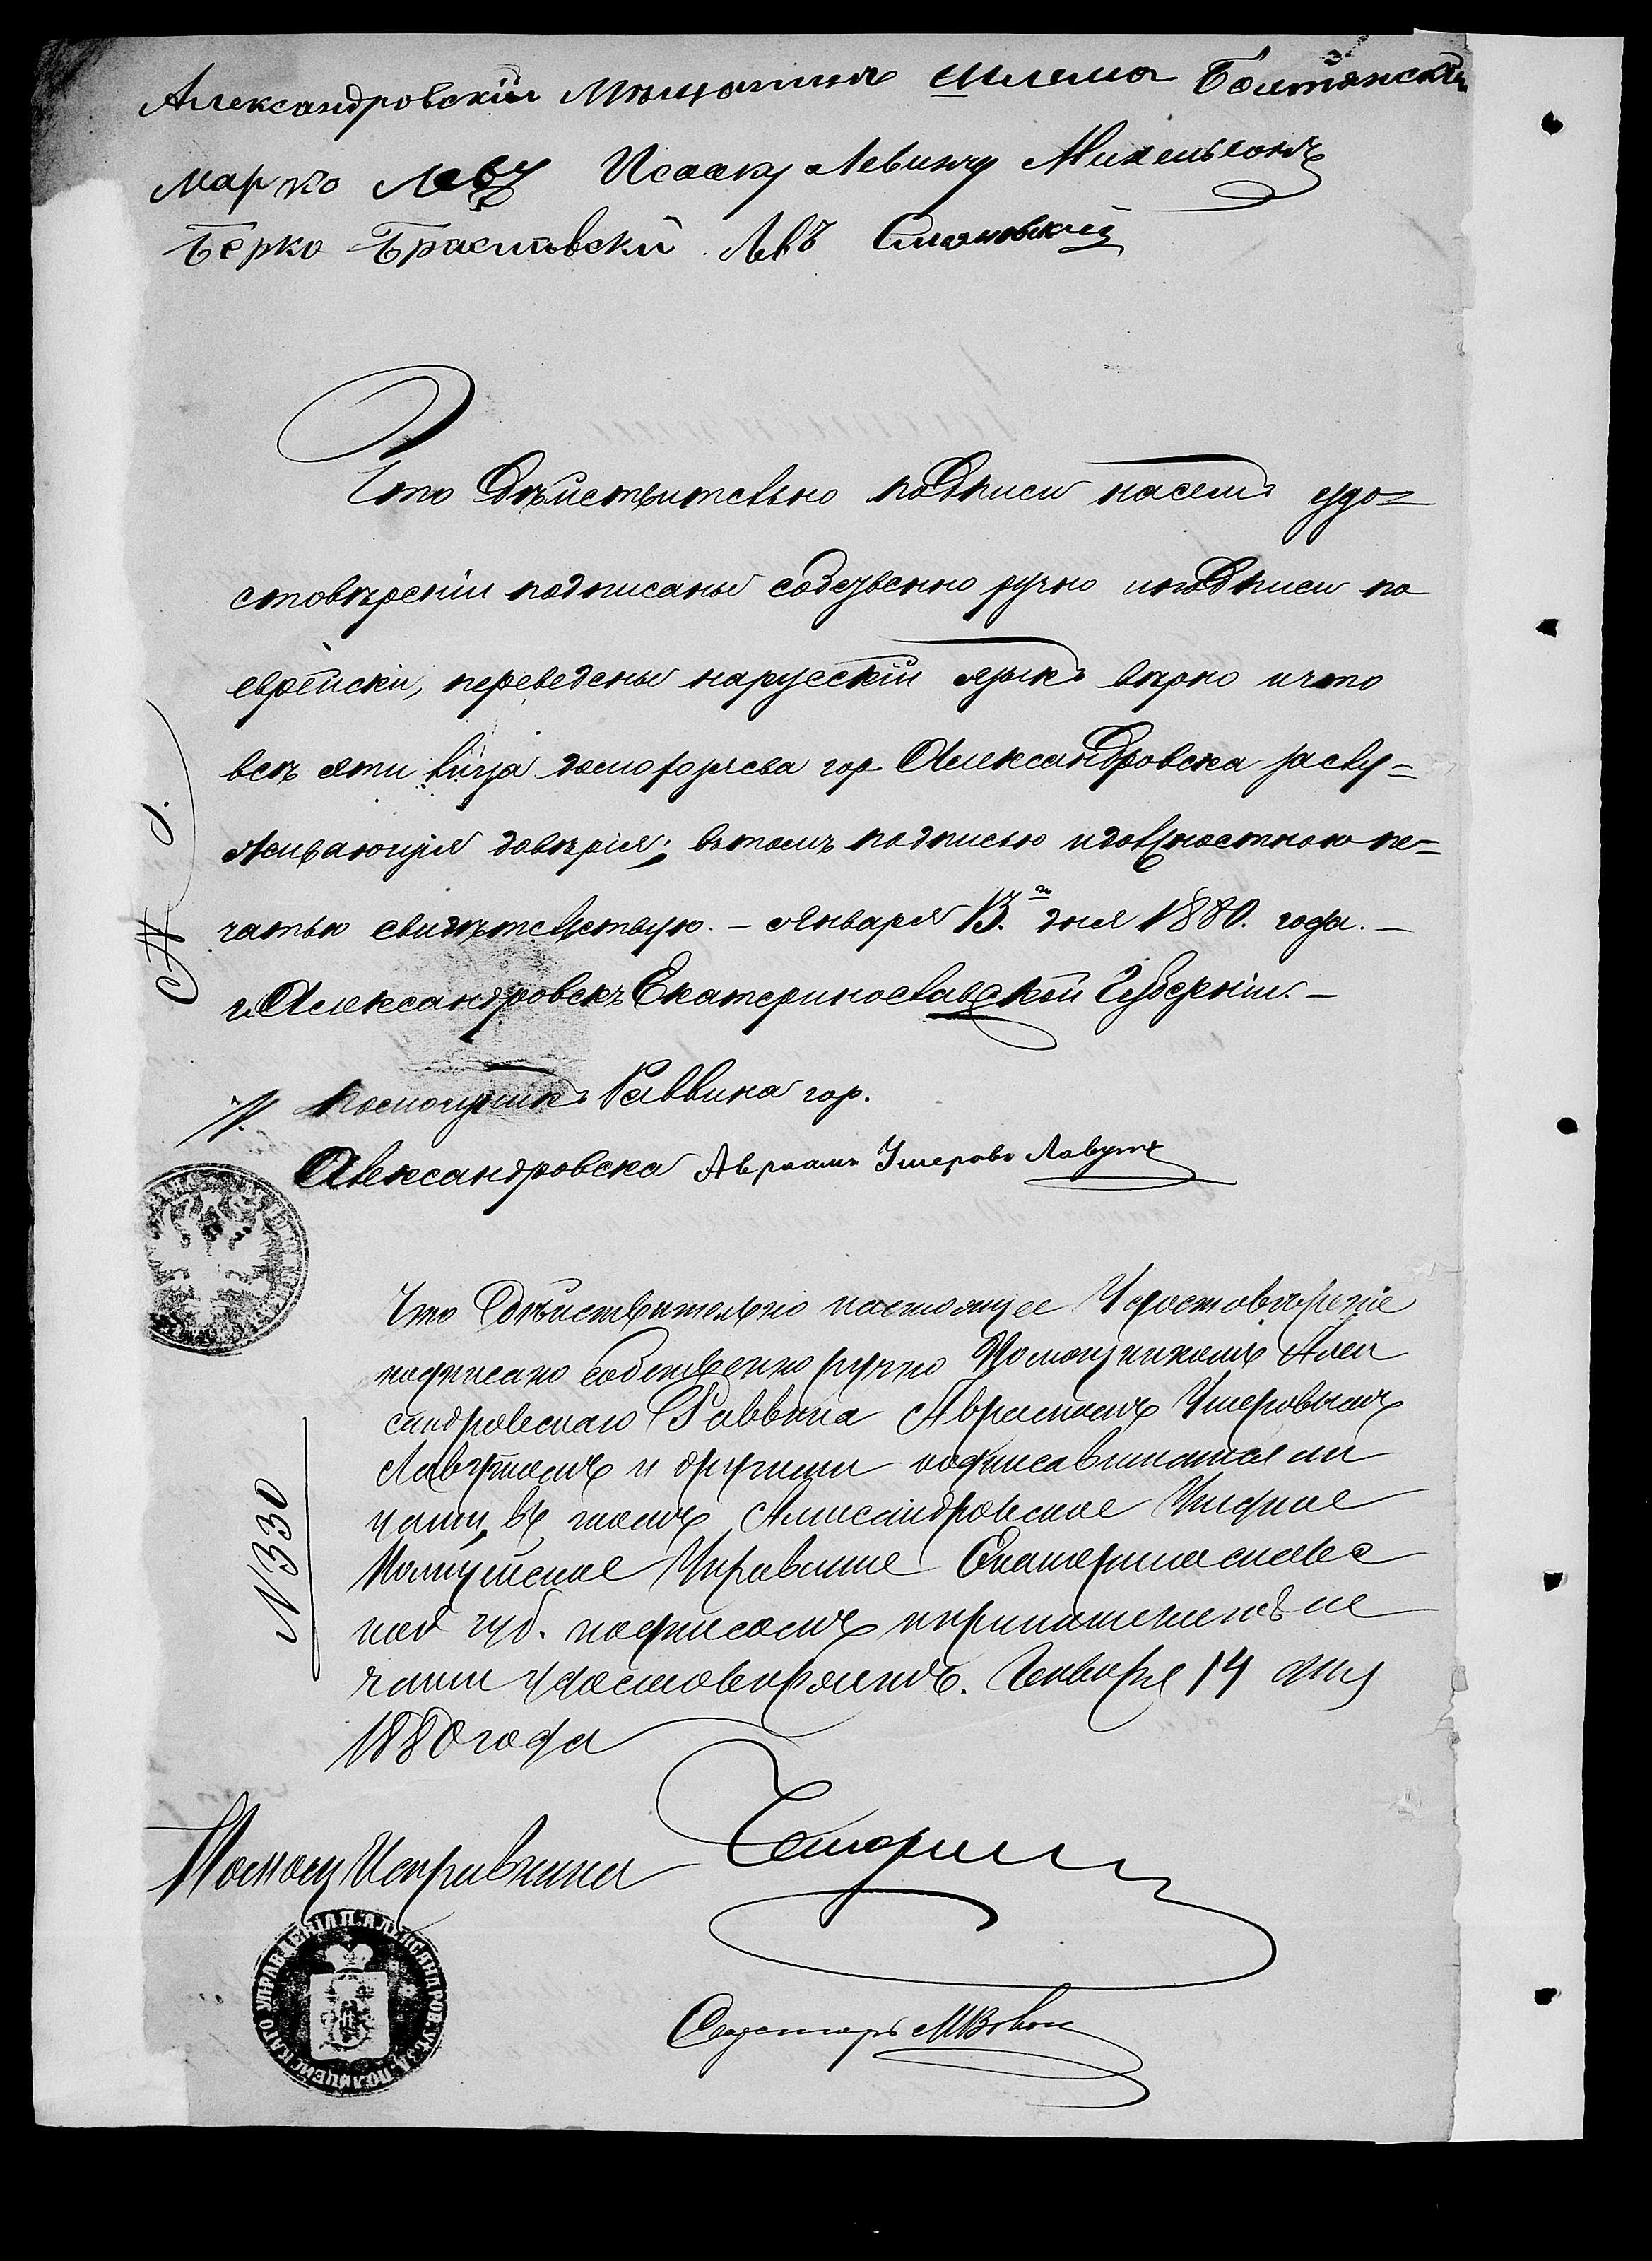 Александровскій Мѣщанинъ Шлема Болтянскій
Марко Леву Исааку Левинчу Михельсонъ
Берко Браславски Левъ Смаяновскій
Что Дѣйствительно подписи насемъ удо=
стовѣреніи подписаны собсувенно ручно иподписи по
еврейски, переведены нарусскій языкъ вѣрно ичто
всѣ эти лица домохозяева гор. Александровска заслу=
живающія довѣрія; вътомъ подписью идолжностною пе=
чатью свидѣтельствую. – Января 13.го дня 1880. года. –
г. Александровскъ Екатеринославской Губерніи. –
М. П.
Помощникъ Раввина гор.
Александровска Авраамъ Ушеровъ Лавутъ
Что Дѣйствительно настоящее Удостовѣреніе
подписано Собственно ручно Помощникомъ Алек
сандровскаго Раввина Авраамомъ Ушеровымъ
Лавутомъ и другими подписавшимися ли
цами, въ томъ Александровское Уѣздное
Полицейское Управленіе Екатеринославс
кой губ. подписомъ иприложеніемъ пе
чати удостовѣряетъ. Генваря 14 дня
1880 года
№ 330
Помощ Исправника
Секретарь
УПРАВЛЕНІЯ П. АЛЕКСАНДРОВ. УѢЗД. ПОЛИЦЕЙСКАГО